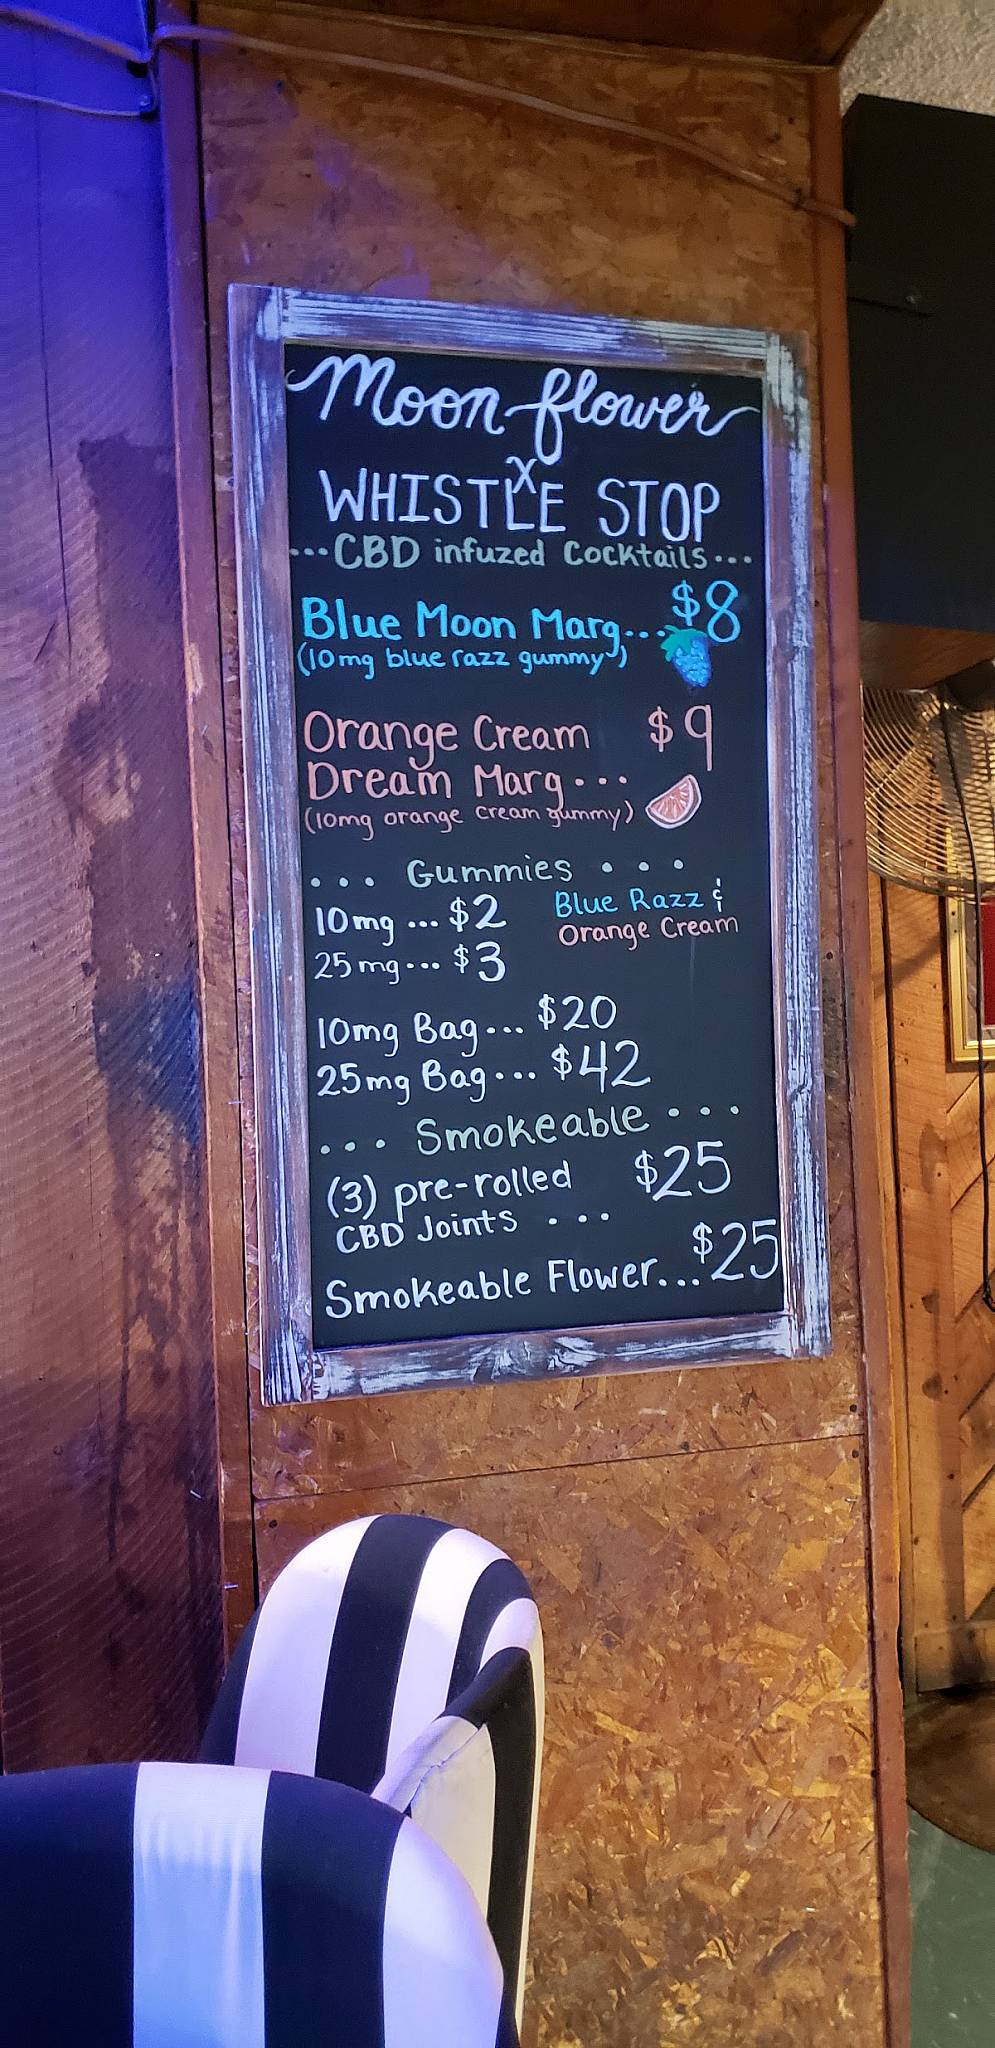 Moonflower
X
WHISTLE STOP
...CBD infuzed Cocktails...
Blue Moon Marg...$8
(10mg blue razz gummy)
Orange Cream $9
Dream Marg...
(10mg orange cream gummy)
... Gummies ...
10mg ... $2 Blue Razz &
Orange Cream
25mg... $3
10mg Bag... $20
25mg Bag... $42
... Smokeable ...
(3) pre-rolled $25
CBD Joints ...
Smokeable Flower...$25